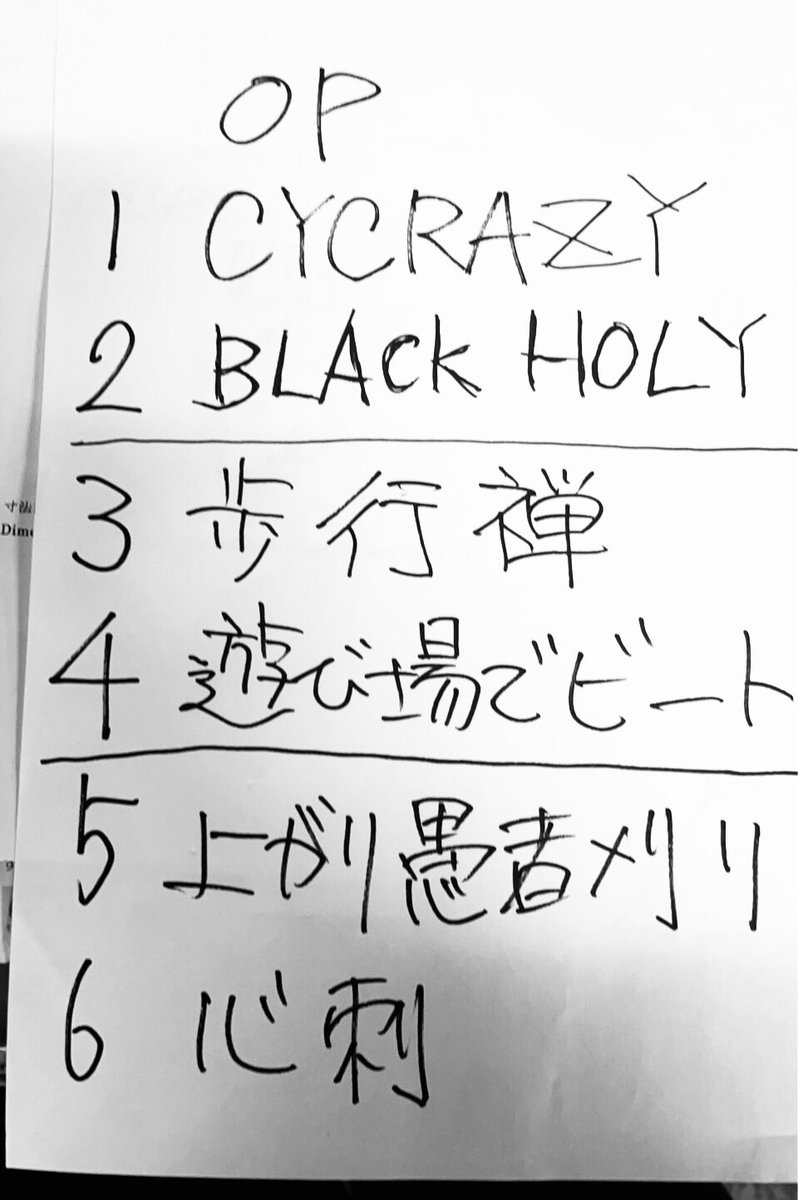 OP
1 CYCRAZY
2 BLACK HOLY
3 歩行禅
4 遊び場でビート
5 上がり愚者刈り
6 心刺
寸法
Dime